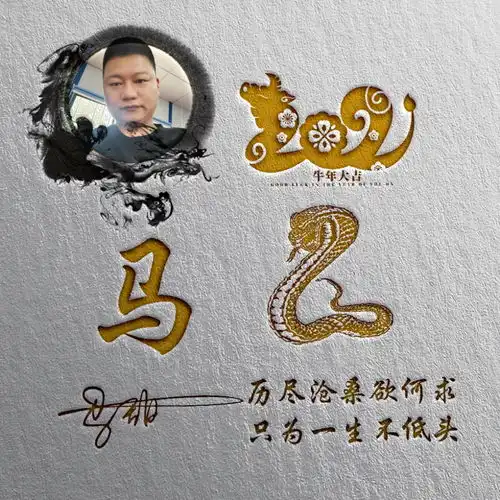 牛年大吉
GOOD LUCK IN THE YEAR OF THE OX
马
历尽沧桑欲何求
只为一生不低头